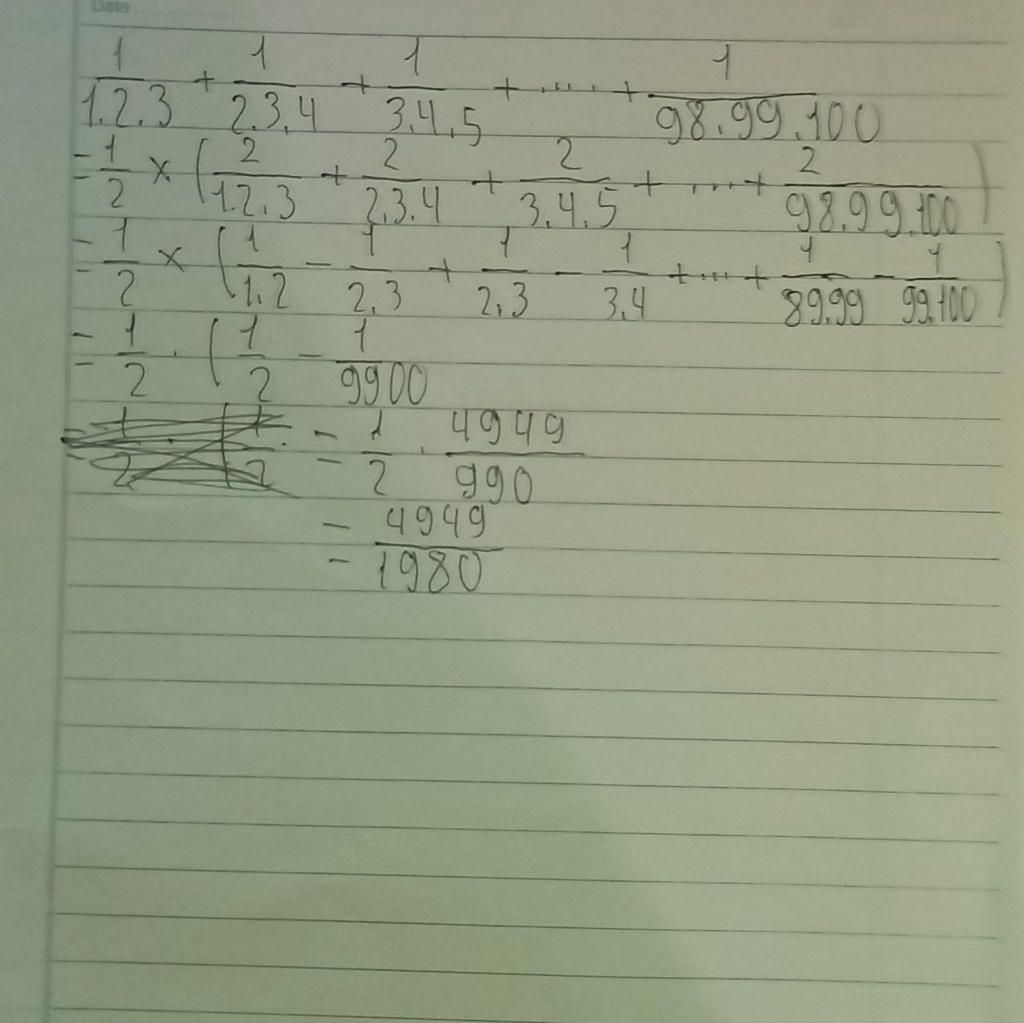 Date
1/1.2.3 + 1/2.3.4 + 1/3.4.5 + .... + 1/98.99.100
= 1/2 × (2/1.2.3 + 2/2.3.4 + 2/3.4.5 + ... + 2/98.99.100)
= 1/2 × (1/1.2 - 1/2.3 + 1/2.3 - 1/3.4 + ... + 1/89.99 - 1/99.100)
= 1/2 . (1/2 - 1/9900
= 1/2 . 4949/990
= 4949/1980